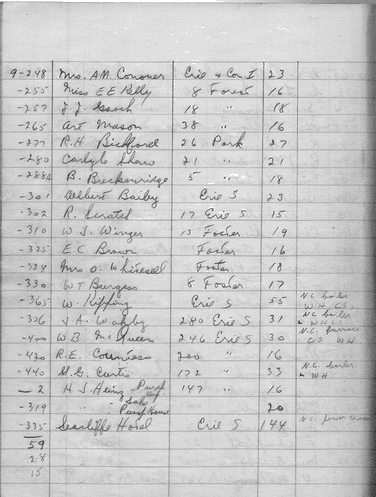 9-248 Mrs. A.M. Cononer Erie & Con. I 23
-255 Miss E E Kelly 8 Forest 16
-257 J.J. 18 " 18
-265 Art Mason 38 " 16
-277 R.H. Bickford 26 Park 27
-280 Carlyle Shaw 21 " 21
-288A B. Breckenridge 5 " 18
-301 Albert Bailey Erie S 23
-302 R. Scratch 17 Erie S 15
-310 W J. Winger 13 Foster 19
-325 E C Brown Foster 16
-328 Mrs O. Foster 18
-330 W T Burgess 8 Foster 17
-365 W Kipping Erie S 55 N.C. boiler W.H. C.S.
-376 J. A. 280 Erie S 31 N.C. boiler & W.H.
-400 W.B. McQueen 246 Erie S 30 N.C. furnace C S W H
-420 R.E. 200 " 16
-440 Curtis 172 " 33 N.C. boiler & W H
-2 H J. Heinz - Pump 147 " 16
-319 " - Lake Pump House 20
-335 Seacliffe Hotel Erie S 144 N.C. power
59
28
15